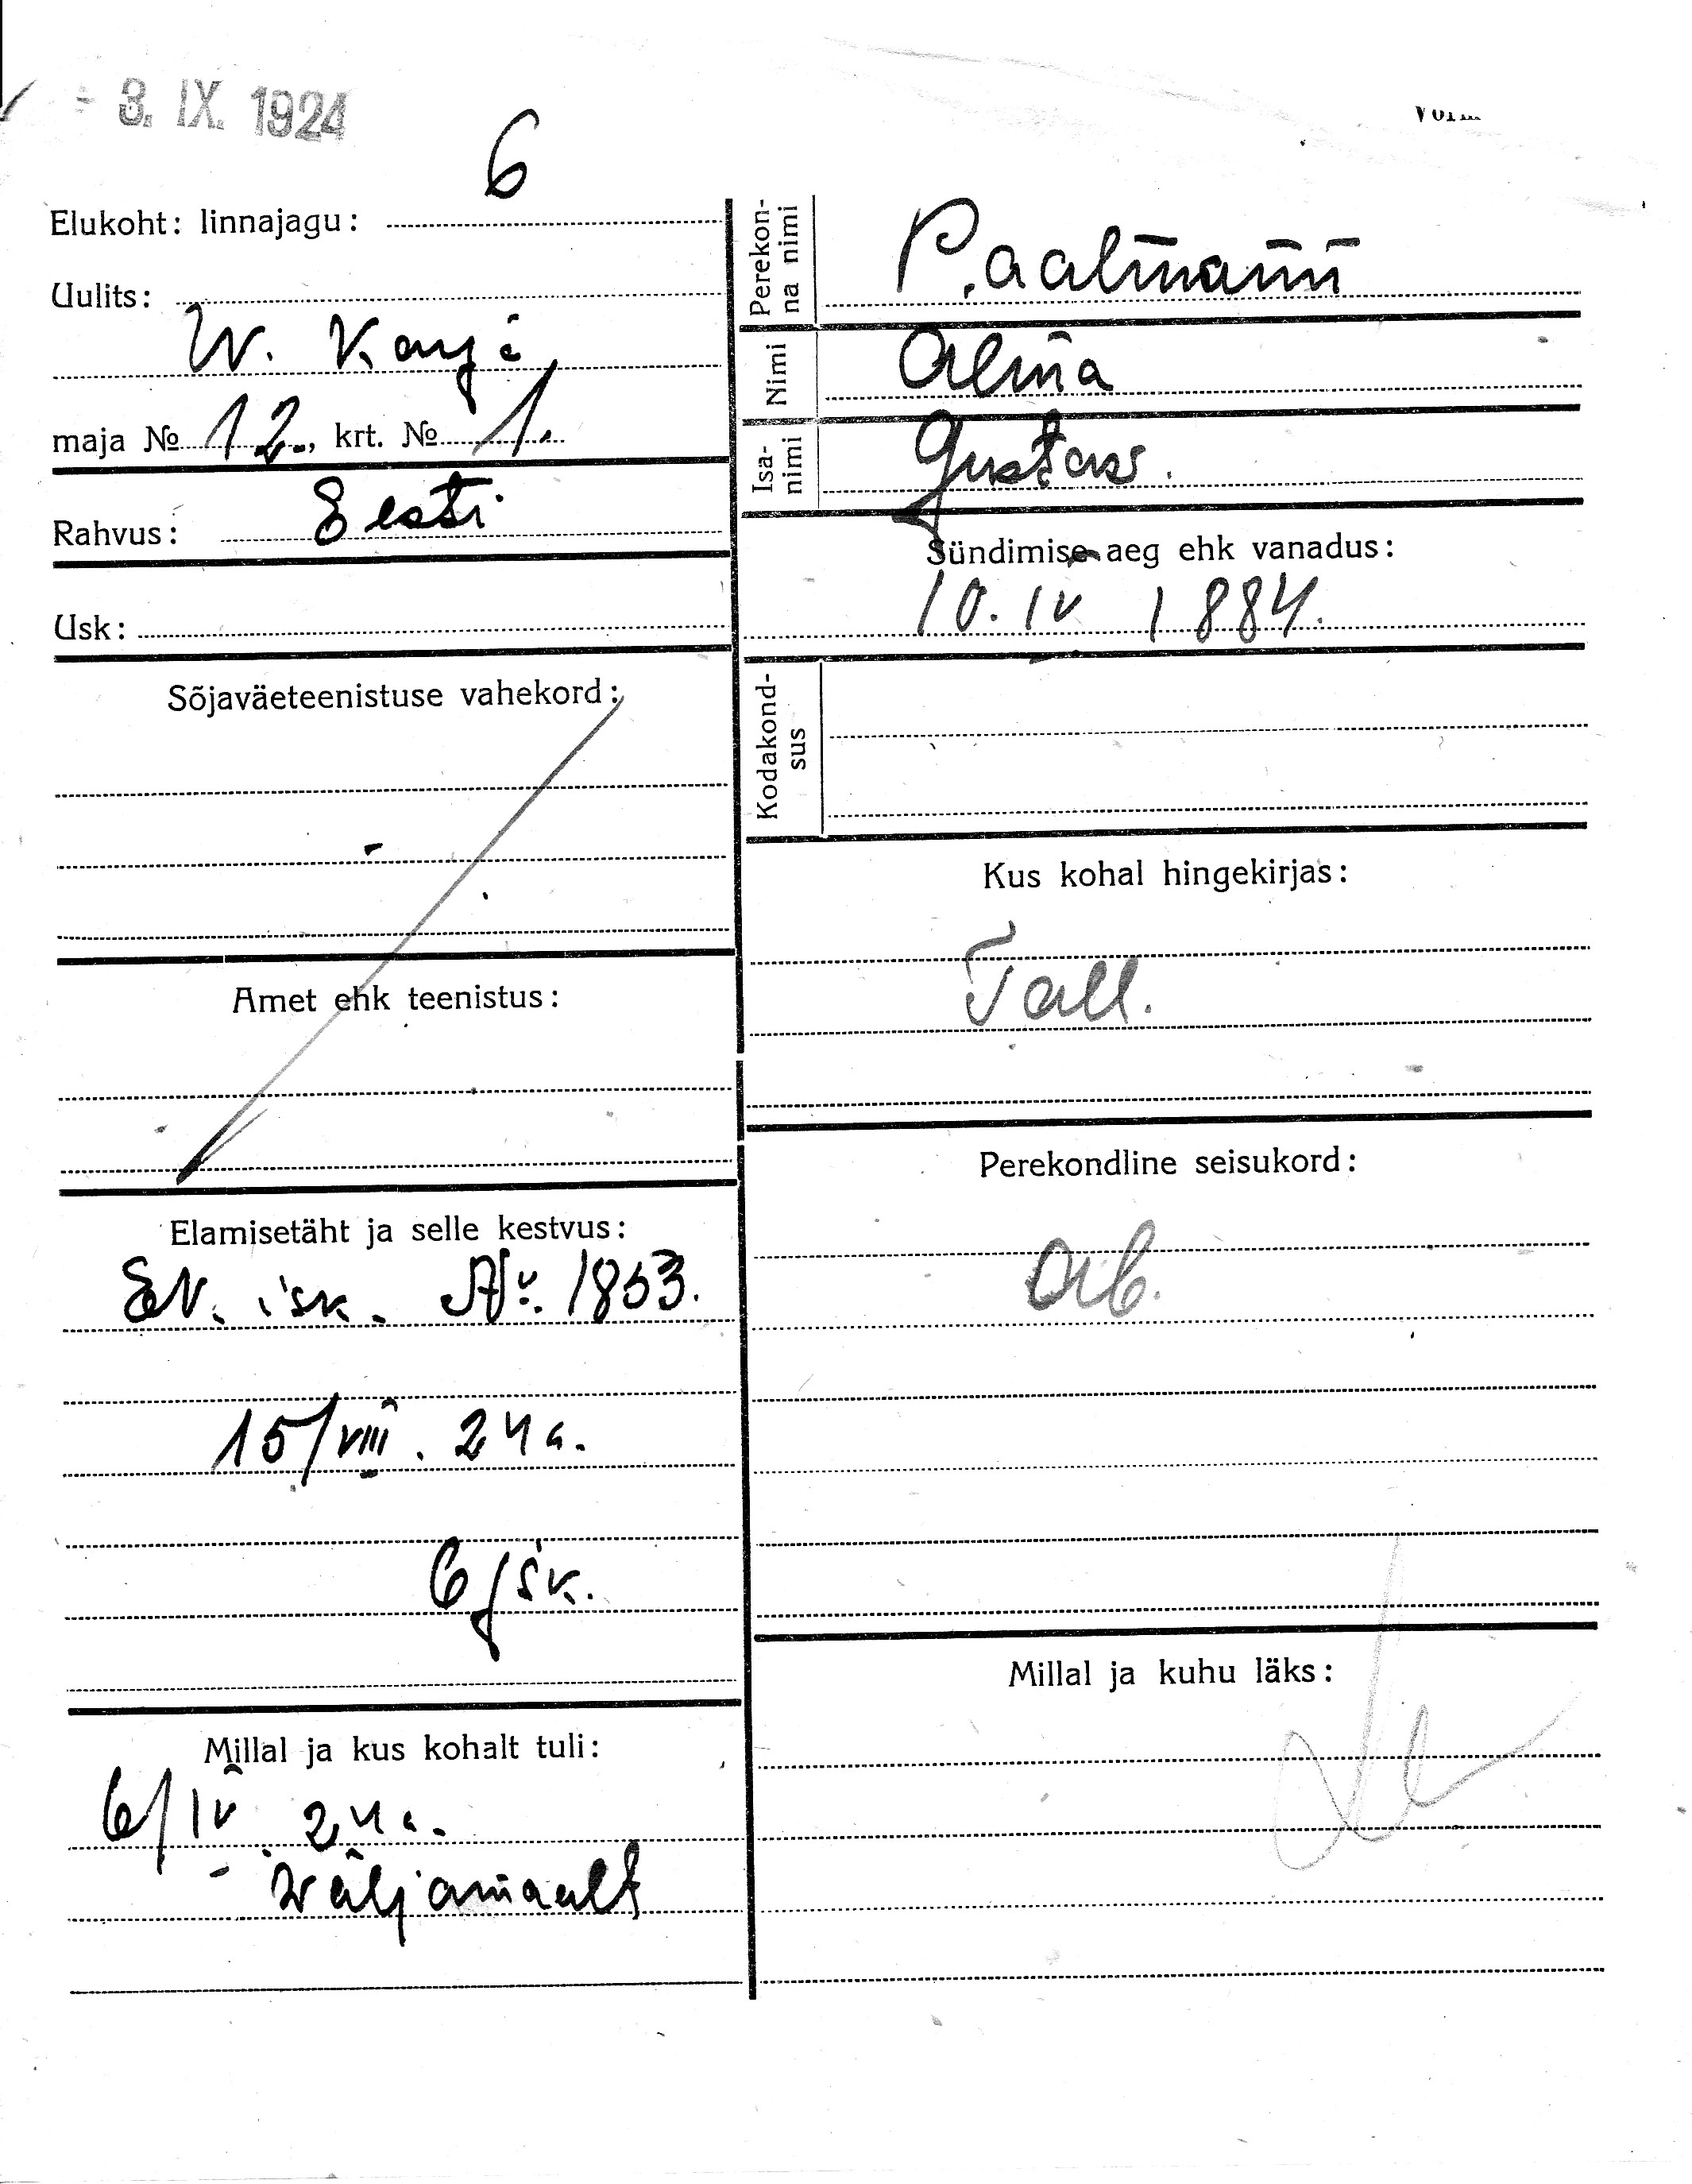 3. IX. 1924
6
Elukoht: linnajagu:
Uulits:
W. Karja
maja № 12., krt. № 1.
Rahvus: Eesti
Usk:
Sõjaväeteenistuse vahekord:
Amet ehk teenistus:
Elamisetäht ja selle kestvus:
isk. № 1853.
15/VIII. 24 a.
6/jsk.
Millal ja kus kohalt tuli:
6/IV 24 a.
wäljamaalt
Perekon-
na nimi
Paalmann
Nimi
Alma
Isa-
nimi
Gustav.
Sündimise aeg ehk vanadus:
10. IV 1884.
Kodakond-
sus
Kus kohal hingekirjas:
Tall.
Perekondline seisukord:
Millal ja kuhu läks: